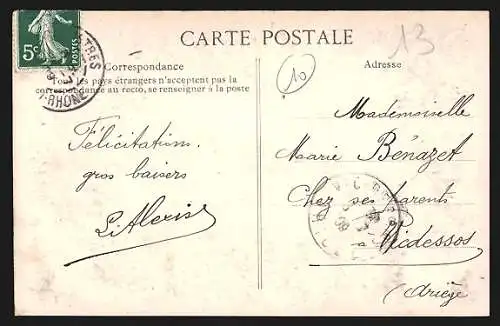 CARTE POSTALE
13
5c
POSTES
RHONE
Correspondance
Tous les pays étrangers n'acceptent pas la
correspondance au recto, se renseigner à la poste
10
Adresse
Félicitation,
gros baisers
L. Alexis
Mademoiselle
Marie Bénazet
Chez ses parents
à Vicdessos
(Ariège
09